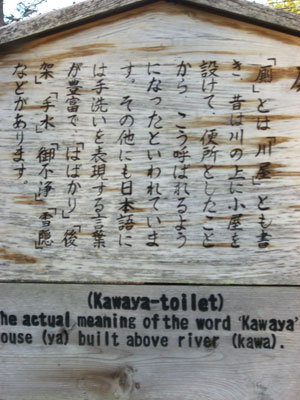 「廁」とは「川屋」とも書
き、昔は川の上に小屋を
設けて、便所としたこと
から、こう呼ばれるよう
になったといわれていま
す。その他にも日本語に
は手洗いを表現する言葉
が豊富で、「はばかり」「後
架」「手水」「御不浄」「雪隠」
などがあります。
(Kawaya-toilet)
he actual meaning of the word 'Kawaya'
ouse (ya) built above river (kawa).